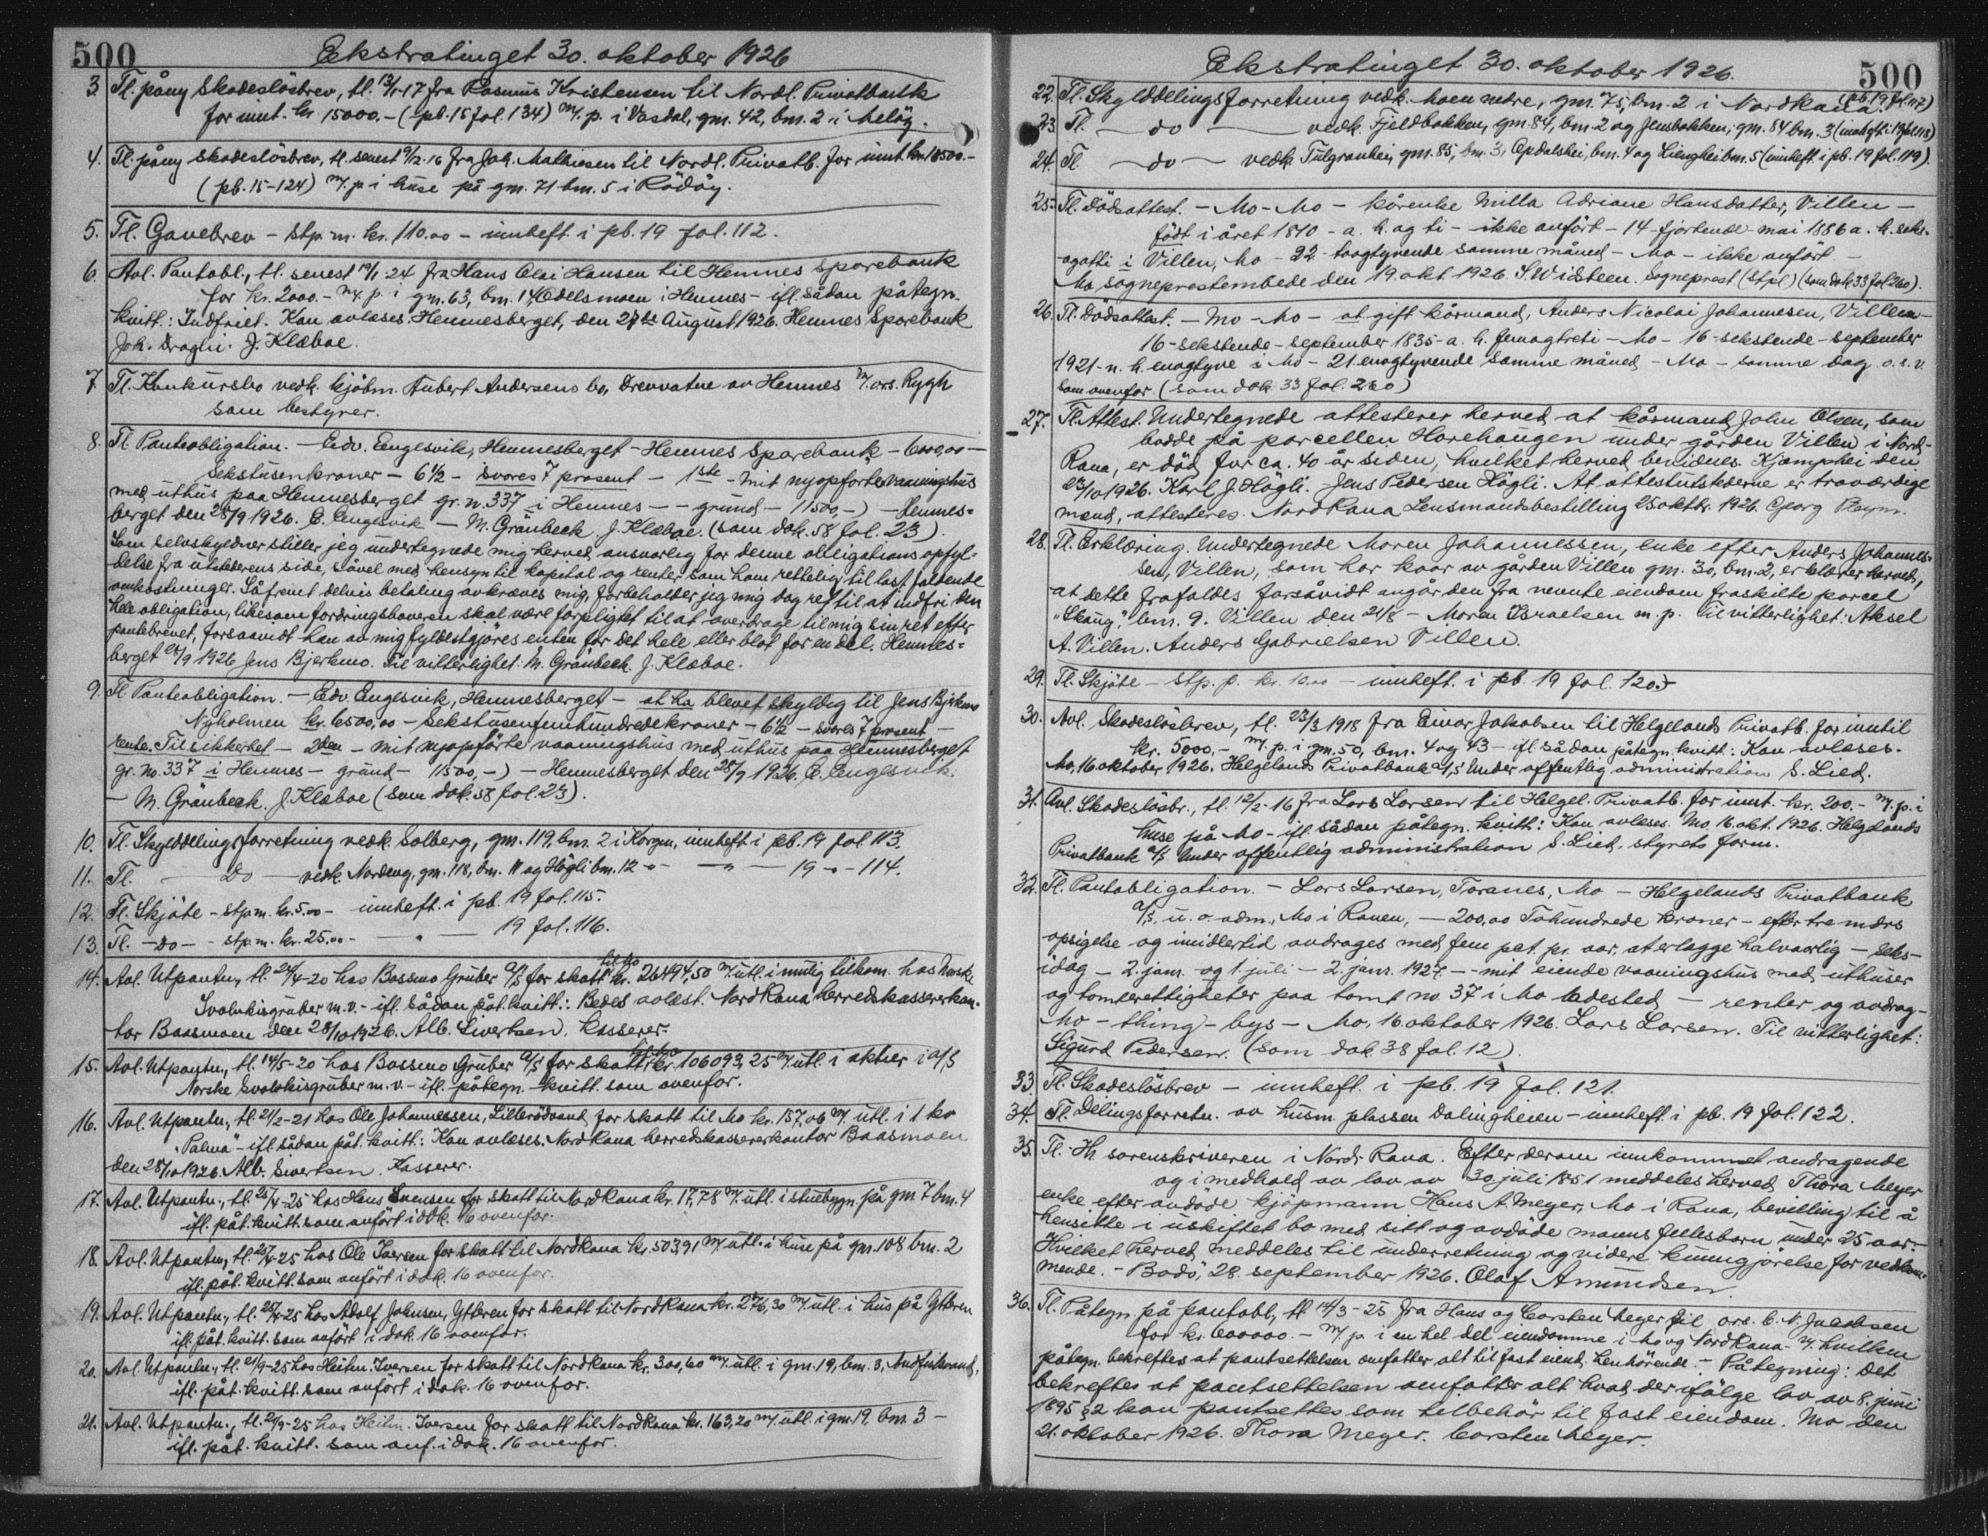 500
Ekstratinget 30. oktober 1926
3. Tl. påny Skadeslösbrev, tl. 13/1-17 fra Rasmus Kristensen til Nordl. Privatbank
for innt. kr. 15000.- (pb. 15 fol. 134) m/. p. i Vasdal, gm. 42, bm. 2 i Melöy.
4. Tl. påny skadeslösbrev, tl. senest 9/12-16 fra Joh. Mathiesen til Nordl. Privatb. for innt. kr. 18500.-
(pb. 15-124) m/. p. i huse på gm. 71 bm. 5 i Rödöy.
5. Tl. Gavebrev - stp. m. kr. 110.00 - innheft. i pb. 19 fol. 112.
6. Avl. Pantobl., tl. senest 19/1-24 fra Hans Olai Hansen til Hemnes Sparebank
for kr. 2000.- m/. p. i gm. 63, bm. 14 Odelsmoen i Hemnes - ifl. sådan påtegn.
kvitt: Indfriet. Kan avlæses. Hemnesberget, den 27de August 1926. Hemnes Sparebank
Joh. Dragli. J. Klæboe.
7. Tl. Konkursbo vedk. kjöbm. Aubert Andersens bo, Drevvatne av Hemnes m/. ors. Rygh
som bestyrer.
8. Tl. Panteobligation. - Edv. Englesvik, Hemnesberget - Hemnes Sparebank - 6000,00 -
Sekstusenkroner - 6 1/2 - svares 7 prosent - 1ste - mit nyopförte vaaningshus
med uthus paa Hemnesberget gr. n. 337 i Hemnes - - grund - 11500.-) - Hemnes=
berget den 28/9 1926. E. Englesvik - M. Grönbeck. J. Klæboe. (som dok. 58 fol. 23).
Som selvskyldner stiller jeg undertegnede mig herved ansvarlig for denne obligations opfyl-
delse fra utstederens side, såvel med hensyn til kapital og renter som ham rettelig til last faldende
omkostninger. Såfremt delvis betaling avkræves mig, forbeholder jeg mig dog ret til at indfri den
hele obligation, likesom fordringshaveren skal være forpligtet til at overdrage til mig sin ret efter
pantebrevet, forsaavidt han av mig fyldestgjöres enten for det hele eller blot for en del. Hemnes=
berget 28/9 1926 Jens Bjerkmo. Til vitterlighet: M. Grönbeck. J. Klæboe.
9. Tl. Panteobligation. - Edv. Englesvik, Hemnesberget - at ha blevet skyldig til Jens Bjerkmo
Nyholmen kr. 6500,00 - Sekstusenfemhundredekroner - 6 1/2 - svares 7 prosent -
rente. Til sikkerhet - 2den - mit nyopförte vaaningshus med uthus paa Hemnesberget
gr. no. 337 i Hemnes - grund - 11500,-) - Hemnesberget den 28/9 1926, E. Englesvik.
- M. Grönbeck. J. Klæboe (som dok. 58 fol. 23).
10. Tl. Skylddelingsforretning vedk. Solberg, gm. 119, bm. 2 i Korgen, innheft i pb. 19 fol. 113.
11. Tl. - do - vedk. Nordeng, gm. 118, bm. 11 og Högli bm. 12 - " - 19 - - 114.
12. Tl. Skjöte - stp. m. kr. 5.00 - innheft. i pb. 19 fol. 115.
13. Tl. - do - - stp. m. kr. 25.00 - " - 19 fol. 116.
14. Avl. Utpantn., tl. 24/4-20 hos Bossmo Gruber a/s for skatt til Mo kr. 26494,50 m/. utl. i mulig tilkom. hos Norsk
Svovlkisgruber m. v. - ifl. sådan påt. kvitt.: Bedes avlæst. Nord Rana herredskassererkon-
tor Baasmoen den 28/10 1926. Alb. Sivertsen. Kasserer.
15. Avl. Utpantn., tl. 14/5-20 hos Bossmo Gruber a/s for skatt til Mo kr. 106093,25 m/. utl. i aktier i a/s
Norske Svovlkisgruber m. v. - ifl. påtegn. kvitt. som ovenfor.
16. Avl. Utpantn., tl. 21/2-21 hos Ole Johannessen, Lillerödvand for skatt til Mo kr. 157,06 m/. utl. i 1 ko
"Palma" - ifl. sådan påt. kvitt.: Kan avlæses. Nord Rana herredskassererkontor Baasmoen
den 28/10 1926. Alb. Sivertsen. Kasserer.
17. Avl. Utpantn., tl. 25/4-25 hos Hans Svensen for skatt til Nord Rana kr. 17,78 m/. utl. i stuebygn. på gm. 7 bm. 4
ifl. påt. kvitt. som anfört i dok. 16 ovenfor.
18. Avl. Utpantn., tl. 25/4-25 hos Ole Iversen for skatt til Nord Rana kr. 503,91 m/. utl. i huse på gm. 108 bm. 2
ifl. påt. kvitt. som anfört i dok. 16 ovenfor.
19. Avl. Utpantn., tl. 25/4-25 hos Adolf Johnsen, Ytteren for skatt til Nord Rana kr. 276,30 m/. utl. i hus på Ytteren
ifl. påt. kvitt. som anfört i dok. 16 ovenfor.
20. Avl. Utpantn., tl. 21/9-25 hos Heihn. Iversen for skatt til Nord Rana kr. 300,60 m/. utl. i gm. 19, bm. 3,
ifl. påt. kvitt. som anfört i dok. 16 ovenfor.
21. Avl. Utpantn., tl. 21/9-25 hos Heihn. Iversen for skatt til Nord Rana kr. 163,20 m/. utl. i gm. 19. bm. 3 -
ifl. påt. kvitt. som anf. i dok. 16 ovenfor.
Ekstratinget 30. oktober 1926.
500
22. Tl. Skylddelingsforretning vedk. moen nedre, gm. 75, bm. 2 i Nord Rana. (pb. 19 fol. 117)
23. Tl. - do - vedk. Fjeldbakken, gm. 84, bm. 2 og Jensbakken, gm. 84 bm. 3 (innheft i 19 fol. 118)
24. Tl. - do - vedk. Tulgranhei, gm. 85, bm. 3, Opdalshei, bm. 4 og Lienghei bm. 5 (innheft. i pb. 19 fol. 119).
25. Tl. Dödsattest. - Mo - Mo - kårenke Milla Adriane Hansdatter, Villen -
födt i året 1810 - a. h. og ti - ikke anfört - 14 - fjortende mai 1886 a. h. seks-
ogotti i Villen, Mo - 22 - toogtyvende samme måned - Mo - ikke anfört -
Mo sogneprestembede den 19 okt. 1926. S. Widsteen. sogneprest. (stpl) (som dok 33 fol. 260).
26. Tl. Dödsattest. - Mo - Mo - at gift kårmand, Anders Nicolai Johannesen, Villen -
16 - sekstende - september 1835 - a. h. femogtreti - Mo - 16 - sekstende - september
1921 - n. h. enogtyve i Mo - 21. enogtyvende samme måned - Mo - samme dag o.s.v.
som ovenfor (som dok. 33 fol. 260)
27. Tl. Attest. Undertegnede attesterer herved at kårmand John Olsen, som
bodde på parcellen Horehaugen under gården Villen i Nord-
Rana, er död for ca. 40 år siden, hvilket herved bevidnes. Kjæmphei den
23/10 1926. Karl J. Högli. Jens Pedersen Högli. At attestutstederne er troværdige
mænd, attesteres. Nord Rana Lensmandsbestilling 25 oktbr. 1926. Georg Pleym.
28. Tl. Erklæring. Undertegnede Maren Johannessen, enke efter Anders Johannes-
sen, Villen, som har kaar av gården Villen gm. 30, bm. 2, erklærer herved,
at dette frafaldes forsåvidt angår den fra nevnte eiendom fraskilte parcel
"Skaug", bm. 9. Villen den 21/8 - Maren Israelsen m. p. Til vitterlighet: Aksel
A. Villen. Anders Gabrielsen Villen.
29. Tl. Skjöte - stp. p. kr. 10.00 - innheft. i pb. 19 fol. 120.
30. Avl. Skadeslösbrev, tl. 23/3 1918 fra Einar Jakobsen til Helgelands Privatb. for inntil
kr. 5000.- m/. p. i gm. 50, bnr. 4 og 43 - ifl. sådan påtegn. kvitt: Kan avlæses.
Mo, 16 oktober 1926. Helgelands Privatbank a/s Under offentlig administration S. Lied.
31. Avl. Skadeslösbr., tl. 12/2-16 fra Lars Larsen til Helgel. Privatb. for innt. kr. 200.- m/. p. i
huse på Mo - ifl. sådan påtegn. kvitt: Kan avlæses. Mo, 16. okt. 1926. Helgelands
Privatbank a/s Under offentlig administration S. Lied. styrets form.
32. Tl. Pantobligation. - Lars Larsen, Toranes, Mo - Helgelands Privatbank
a/s u. o. adm., Mo i Ranen, - 200,00 Tohundrede kroner - efter tre mdrs
opsigelse og imidlertid avdrages med fem pct. pr. aar, at erlægge halvaarlig - seks -
idag - 2. jan. og 1. juli - 2. janr. 1927. - - mit eiende vaaningshus med uthuser
og tomterettigheter paa tomt no. 37 i Mo ladested - renter og avdrag -
Mo - thing - bys - Mo, 16. oktober 1926. Lars Larsen. Til vitterlighet:
Sigurd Pedersen. (Som dok. 38 fol. 12).
33. Tl. Skadeslösbrev - innheft. i pb. 19 fol. 121.
34. Tl. Delingsforretn. av husm. plassen Dalingheien - innheft i pb. 19 fol. 122.
35. Tl. Hr. sorenskriveren i Nordr. Rana. Efter derom innkommet andragende
og i medhold av lov av 30 juli 1851 meddeles herved Thora Meyer
enke efter avdöde kjöpmann Hans A. Meyer, Mo i Rana, bevilling til å
hensitte i uskiftet bo med sitt og avdöde manns fellesbarn under 25 aar.-
Hvilket herved meddeles til underretning og videre kunngjörelse for vedkom-
mende. - Bodö, 28. september 1926. Olaf Amundsen.
36. Tl. Påtegn. på pantobl., tl. 14/3-25 fra Hans og Corsten Meyer til ors. C. N. Jacobsen
for kr. 600000.- m/. p. i en hel del eiendomme i Mo og Nord Rana - v/. hvilken
påtegn. bekreftes at pantsettelsen omfatter alt til fast eiend. henhörende. - Påtegning: Det
bekreftes at pantsettelsen omfatter alt hvad der ifölge lov av 8. juni
1895 § 2 kan pantsettes som tilbehör til fast eiendom. Mo den
21. oktober 1926. Thora Meyer. Corsten Meyer.